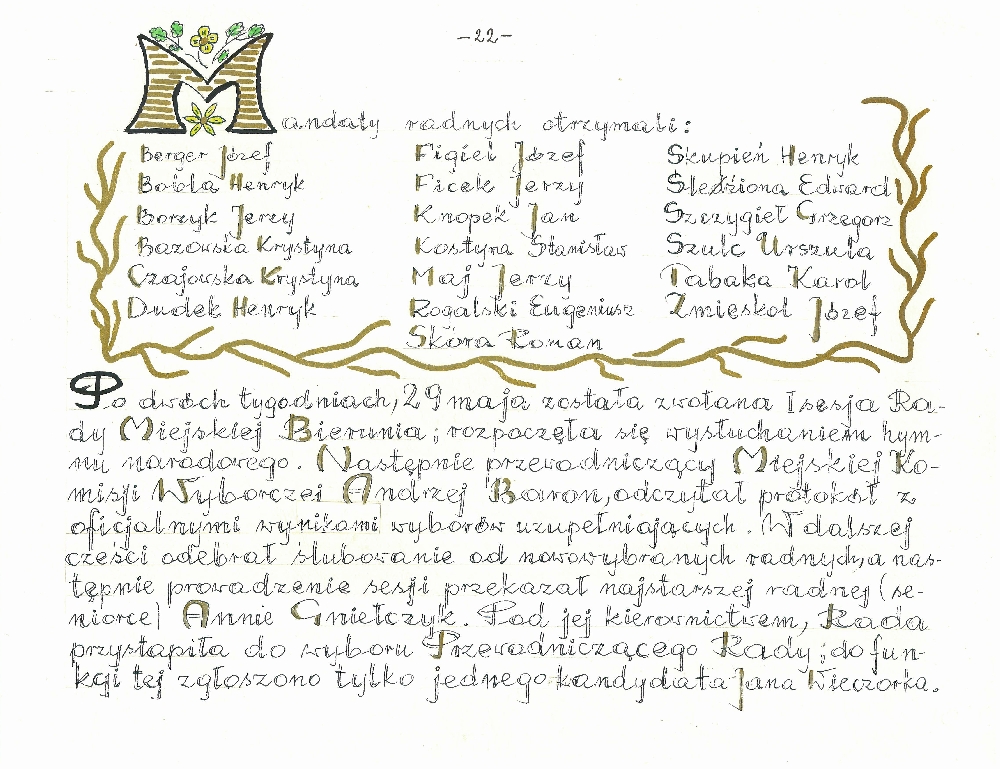 -22-
Mandaty radnych otrzymali:
Berger Józef Figiel Józef Skupień Henryk
Bobla Henryk Ficek Jerzy Sledziona Edward
Borzyk Jerzy Knopek Jan Szczygieł Grzegorz
Bazowska Krystyna Kostyra Stanisław Szulc Urszula
Czajowska Krystyna Maj Jerzy Tabaka Karol
Dudek Henryk Rogalski Eugeniusz Zmieskol Józef
Skóra Roman
Po dwóch tygodniach, 29 maja została zwołana I sesja Ra-
dy Miejskiej Bierunia; rozpoczęta się wysłuchaniem hym-
nu narodowego. Następnie przewodniczący Miejskiej Ko-
misji Wyborczej Andrzej Baron, odczytał protokół z
oficjalnymi wynikami wyborów uzupełniających. W dalszej
cześci odebrał slubowanie od nowowybranych radnych, a nas-
tępnie prowadzenie sesji przekazał najstarszej radnej (se-
niorce) Annie Gniełczyk. Pod jej kierownictwem, Rada
przystąpiła do wyboru Przewodniczącego Rady; do fun-
kcji tej zgłoszono tylko jednego kandydata Jana Wieczorka.